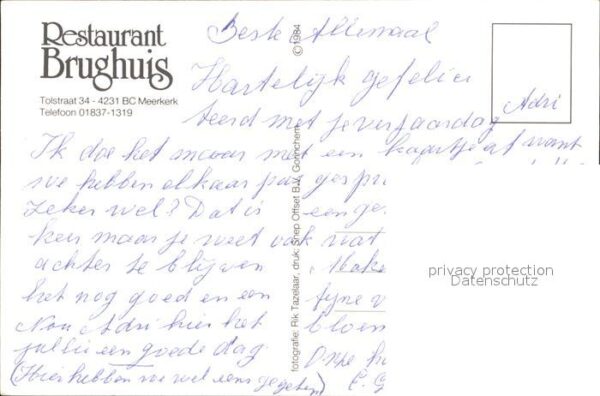 Restaurant
Brughuis
Tolstraat 34 - 4231 BC Meerkerk
Telefoon 01837-1319
© 1984
fotografie: Rik Tazelaar, druk: Snep Offset B.V. Gorinchem
Beste Allemaal
Hartelijk gefelici
teerd met je verjaardag Adri
Ik doe het maar met een kaartje af want
we hebben elkaar pas gespr
Zeker wel? Dat is een ge
ken maar je weet ook wat
achter te blijven
het nog goed en een fijne v
Nou Adri hier het bloem
jullie een goede dag Onze h
(Hier hebben we wel eens gegeten)
privacy protection
Datenschutz